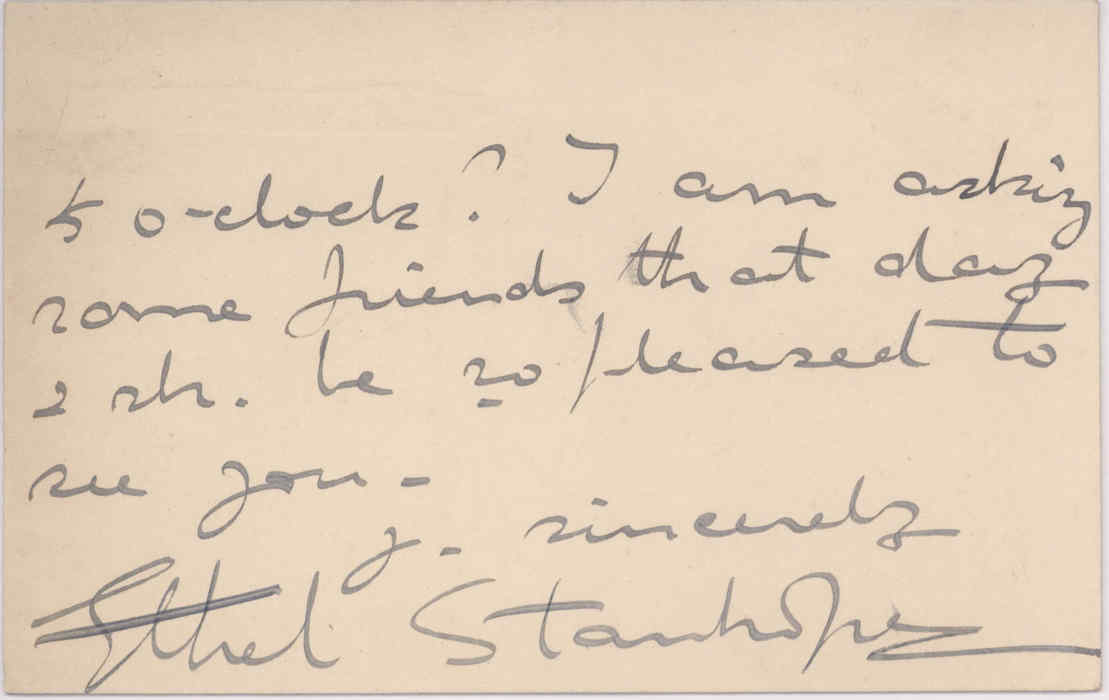 5 o-clock? I am asking
some friends that day
& sh. be so pleased to
see you -
y. sincerely
Ethel Stanhope